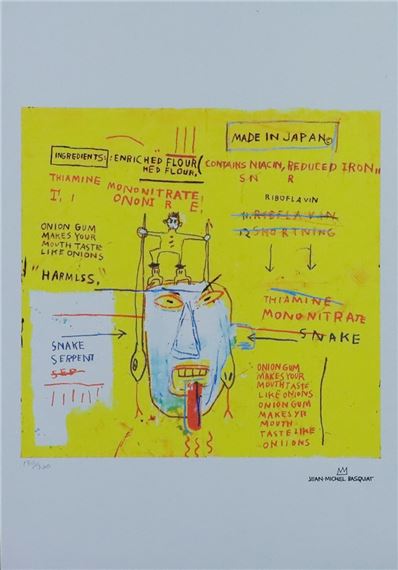 MADE IN JAPAN©
INGREDIENTS: : ENRICHED FLOUR (CONTAINS NIACIN, REDUCED IRON,,
HED FLOUR, S N R
THIAMINE MONONITRATE
I, I ONONI R E,
RIBOFLAVIN
11. RIBOFLAVIN
12 SHORTNING
ONION GUM
MAKES YOUR
MOUTH TASTE
LIKE ONIONS
"HARMLSS,"
THIAMINE
MONONITRATE
SNAKE
SNAKE
SERPENT
SEP
ONION GUM
MAKES YOUR
MOUTH TASTE
LIKE ONIONS
ONION GUM
MAKES YR
MOUTH
TASTE LIKE
ONIIONS
JEAN-MICHEL BASQUIAT